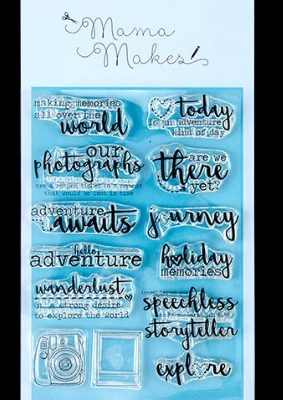 Mama
Makes
making memories
all over the
world
today
is an adventure
kind of day
our
photographs
are we
there
yet?
adventure
awaits
journey
hello
adventure
holiday
memories
wanderlust
strong desire
to explore the world
speechless
storyteller
explore